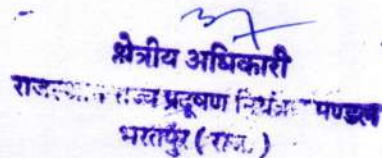 क्षेत्रीय अधिकारी
राजस्थान राज्य प्रदूषण नियंत्रण मण्डल
भरतपुर ( राज. )